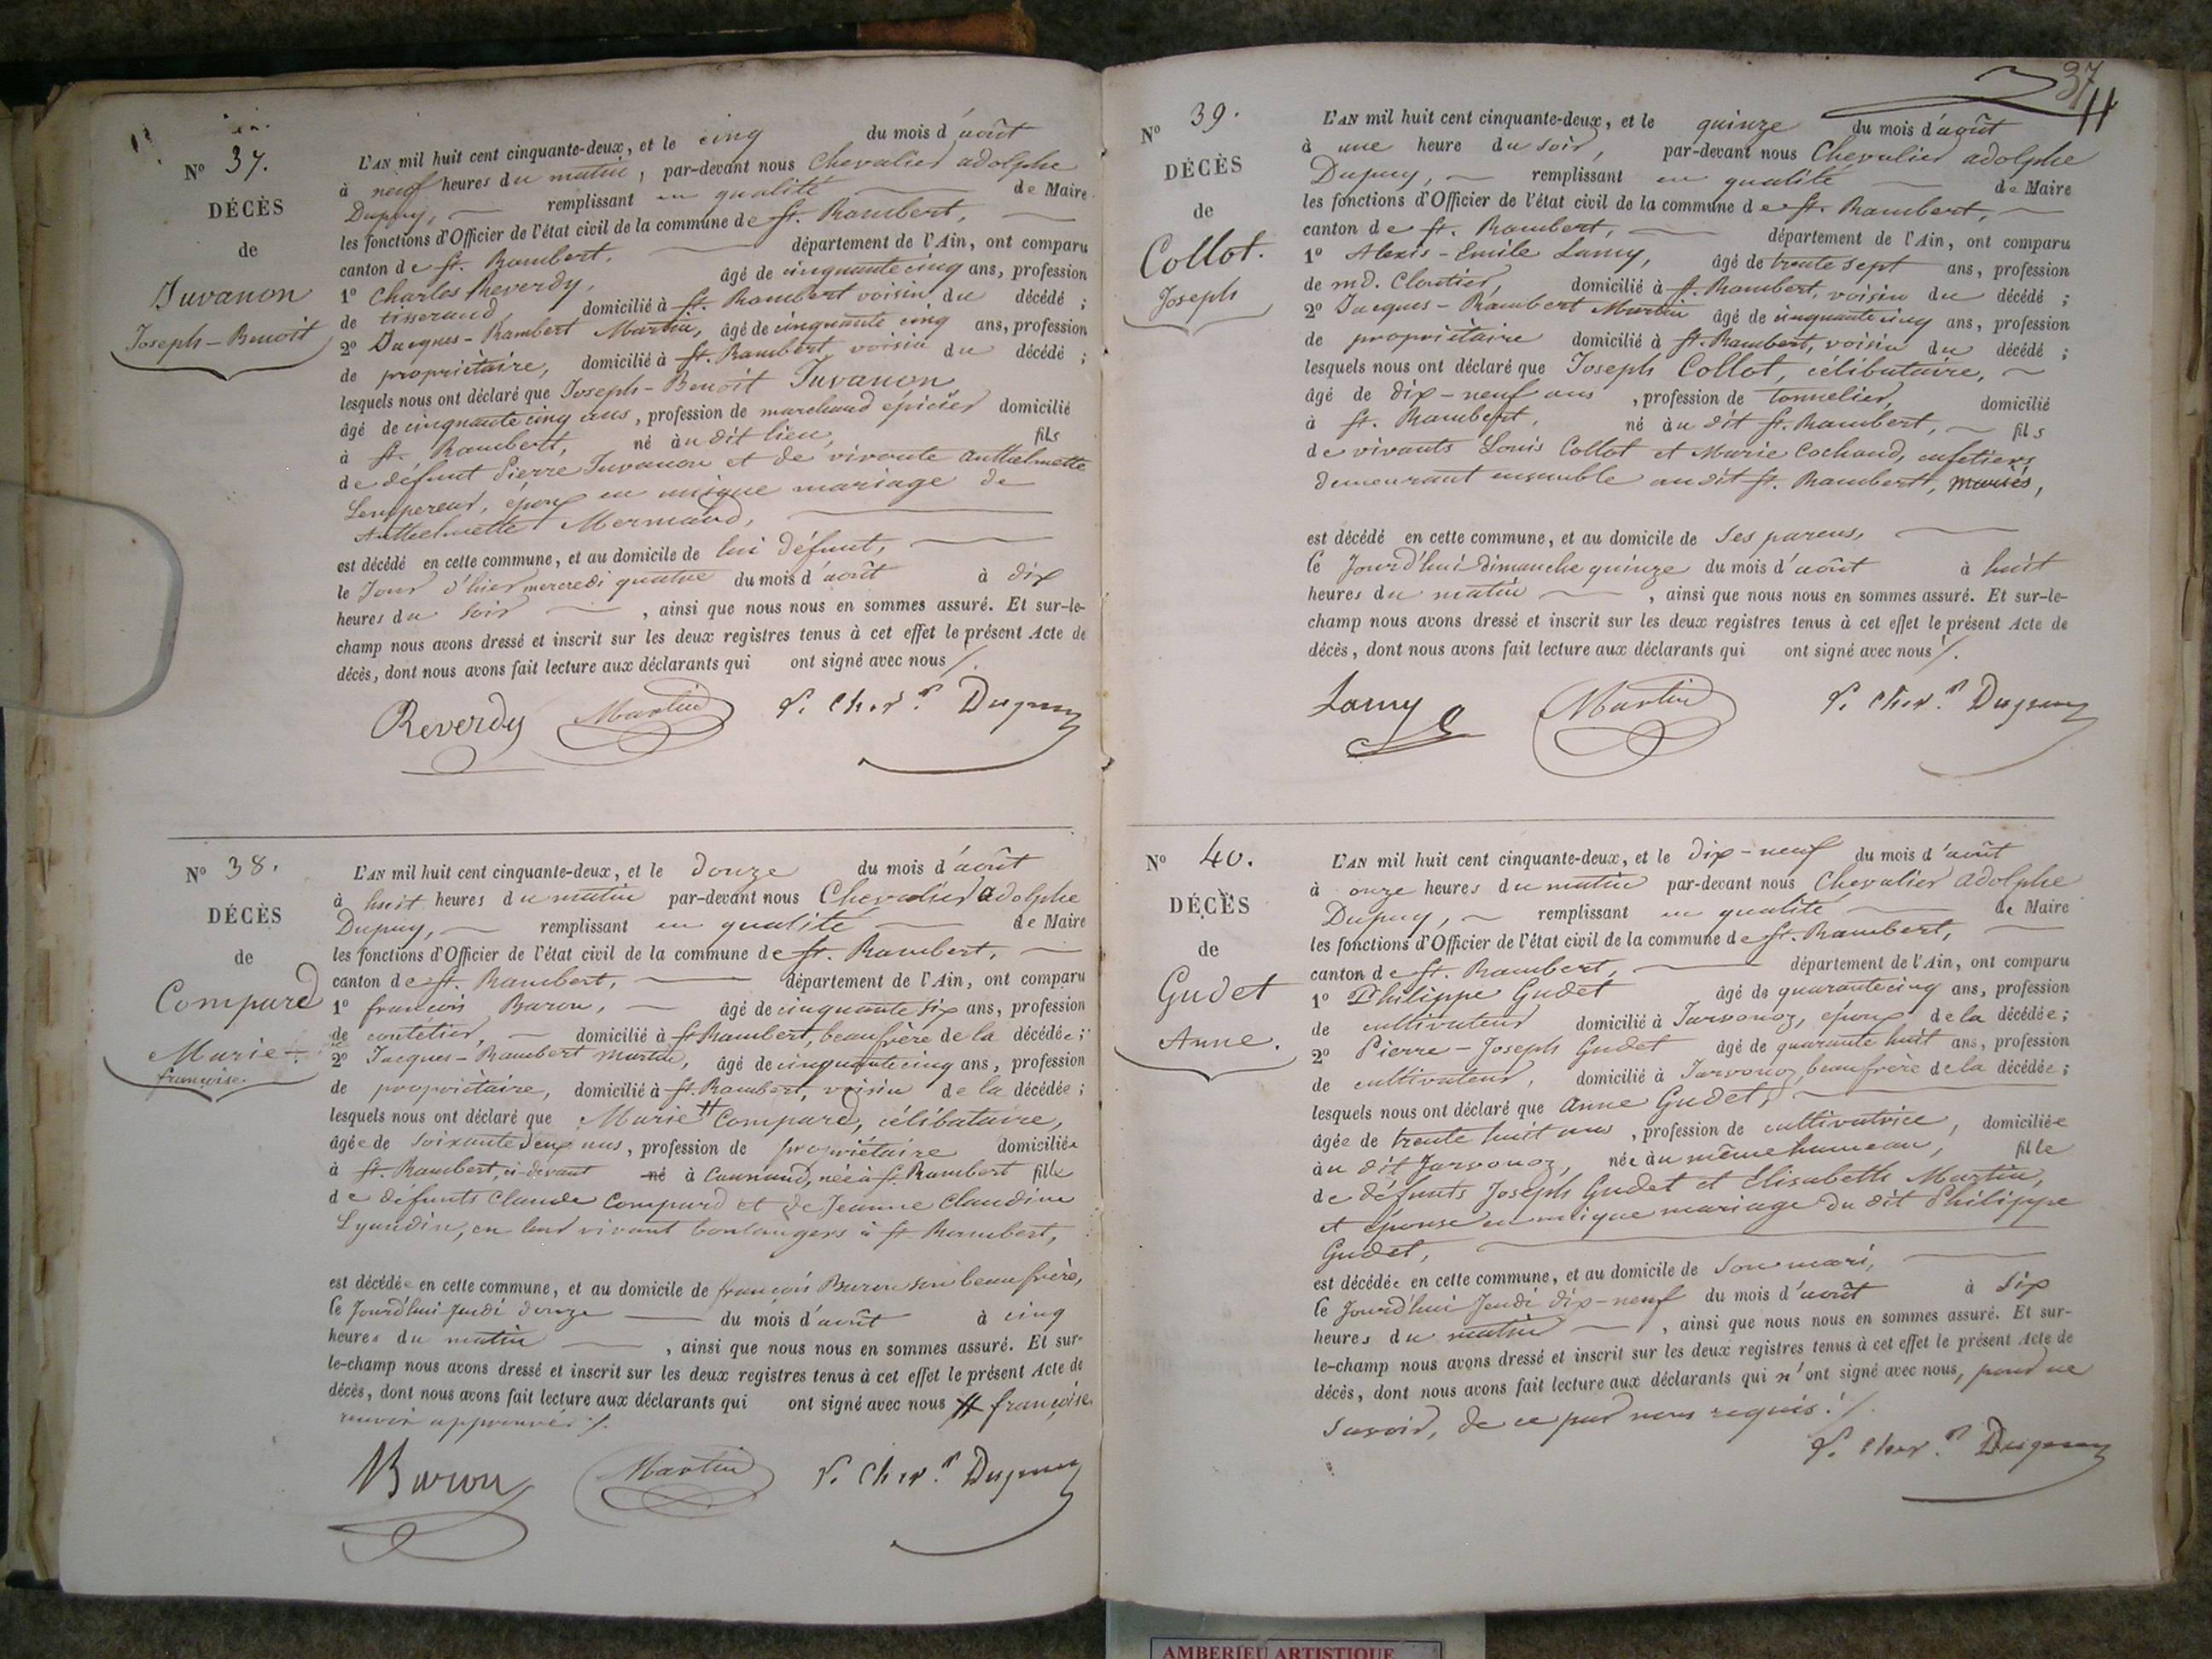 Nº 37.
DÉCÈS
de
Juvanon
Joseph-Benoit
L'AN mil huit cent cinquante-deux, et le cinq du mois d'août
à neuf heures du matin, par-devant nous Chevalier adolphe
Dupuy, remplissant en qualité de Maire
les fonctions d'Officier de l'état civil de la commune de St. Rambert,
canton de St. Rambert, département de l'Ain, ont comparu
1º Charles Reverdy, âgé de cinquante cinq ans, profession
de tisserand, domicilié à St. Rambert voisin du décédé ;
2º Jacques-Rambert Martin, âgé de cinquante cinq ans, profession
de propriétaire, domicilié à St. Rambert, voisin du décédé ;
lesquels nous ont déclaré que Joseph-Benoit Juvanon
âgé de cinquante cinq ans, profession de marchand épicier domicilié
à St. Rambert, né au dit lieu, fils
de défunt Pierre Juvanon et de vivante anthelmette
Lempereur, époux en unique mariage de
Anthelmette Mermand,
est décédé en cette commune, et au domicile de lui défunt,
le Jour d'hier mercredi quatre du mois d'août à dix
heures du soir, ainsi que nous nous en sommes assuré. Et sur-le-
champ nous avons dressé et inscrit sur les deux registres tenus à cet effet le présent Acte de
décès, dont nous avons fait lecture aux déclarants qui ont signé avec nous /.
Reverdy Martin Chev. r Dupuy
Nº 38.
DÉCÈS
de
Compard
Marie-
françoise.
L'AN mil huit cent cinquante-deux, et le douze du mois d'août
à huit heures du matin par-devant nous Chevalier adolphe
Dupuy, remplissant en qualité de Maire
les fonctions d'Officier de l'état civil de la commune de St. Rambert,
canton de St. Rambert, département de l'Ain, ont comparu
1º françois Buron, âgé de cinquante six ans, profession
de domicilié à St Rambert, beaufrère de la décédée ;
2º Jacques-Rambert Martin, âgé de cinquante cinq ans, profession
de propriétaire, domicilié à St. Rambert, voisin de la décédée ;
lesquels nous ont déclaré que Marie # Compard, célibataire,
âgée de soixante deux ans, profession de propriétaire domiciliée
à St. Rambert, ci-devant né à née à St. Rambert fille
de défunts Claude Compard et de Jeanne Claudine
en leur vivant boulangers à St. Rambert,
est décédée en cette commune, et au domicile de françois Buron son beaufrère,
le Jourd'hui Jeudi douze du mois d'août à cinq
heures du matin, ainsi que nous nous en sommes assuré. Et sur-
le-champ nous avons dressé et inscrit sur les deux registres tenus à cet effet le présent Acte de
décès, dont nous avons fait lecture aux déclarants qui ont signé avec nous # françoise
renvoi approuvé /.
Buron Martin Chev. r Dupuy
37
Nº 39.
DÉCÈS
de
Collot.
Joseph
L'AN mil huit cent cinquante-deux, et le quinze du mois d'août
à une heure du soir, par-devant nous Chevalier adolphe
Dupuy, remplissant en qualité de Maire
les fonctions d'Officier de l'état civil de la commune de St. Rambert,
canton de St. Rambert, département de l'Ain, ont comparu
1º Alexis-Emile Lamy, âgé de trente sept ans, profession
de md. Cloutier, domicilié à St. Rambert, voisin du décédé ;
2º Jacques-Rambert Martin âgé de cinquante cinq ans, profession
de propriétaire domicilié à St. Rambert, voisin du décédé ;
lesquels nous ont déclaré que Joseph Collot, célibataire,
âgé de dix-neuf ans, profession de tonnelier, domicilié
à St. Rambert, né au dit St. Rambert, fils
de vivants Louis Collot et Marie Cochand, cafetiers
demeurant ensemble audit St. Rambert, mariés,
est décédé en cette commune, et au domicile de ses parens,
le Jourd'hui dimanche quinze du mois d'août à huit
heures du matin, ainsi que nous nous en sommes assuré. Et sur-le-
champ nous avons dressé et inscrit sur les deux registres tenus à cet effet le présent Acte de
décès, dont nous avons fait lecture aux déclarants qui ont signé avec nous /.
Lamy Martin Chev. r Dupuy
Nº 40.
DÉCÈS
de
Gudet
Anne.
L'AN mil huit cent cinquante-deux, et le dix-neuf du mois d'août
à onze heures du matin par-devant nous Chevalier adolphe
Dupuy, remplissant en qualité de Maire
les fonctions d'Officier de l'état civil de la commune de St. Rambert,
canton de St. Rambert, département de l'Ain, ont comparu
1º Philippe Gudet âgé de quarante cinq ans, profession
de cultivateur domicilié à Jarvonoz, époux de la décédée ;
2º Pierre-Joseph Gudet âgé de quarante huit ans, profession
de cultivateur, domicilié à Jarvonoz, beaufrère de la décédée ;
lesquels nous ont déclaré que Anne Gudet,
âgée de trente huit ans, profession de cultivatrice, domiciliée
au dit Jarvonoz, née au même hameau, fille
de défunts Joseph Gudet et Elisabeth Martin,
et épouse en unique mariage du dit Philippe
Gudet,
est décédée en cette commune, et au domicile de son mari,
le Jourd'hui Jeudi dix-neuf du mois d'août à six
heures du matin, ainsi que nous nous en sommes assuré. Et sur-
le-champ nous avons dressé et inscrit sur les deux registres tenus à cet effet le présent Acte de
décès, dont nous avons fait lecture aux déclarants qui n'ont signé avec nous, pour ne
savoir, de ce par nous requis /.
Chev. r Dupuy
AMBERIEU ARTISTIQUE